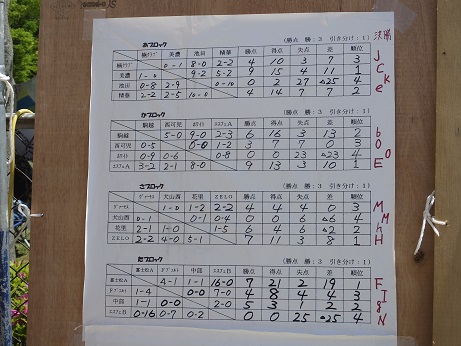 あブロック (勝点 勝:3 引き分け:1) 決勝
楠クラブ 美濃 池田 精華 勝点 得点 失点 差 順位
楠クラブ 0-1 8-0 2-2 4 10 3 7 3 J
美濃 1-0 9-2 5-2 9 15 4 11 1 C
池田 0-8 2-9 0-10 0 2 27 △25 4 K
精華 2-2 2-5 10-0 4 14 7 7 2 e
かブロック (勝点 勝:3 引き分け:1)
駒越 西可児 勝点 得点 失点 差 順位
駒越 5-0 9-0 2-3 6 16 3 13 2 b
西可児 0-5 0-0 1-2 3 7 7 0 3 O
0-9 0-6 0-8 0 0 23 △23 4 O
3-2 2-1 8-0 9 13 3 10 1 E
さブロック (勝点 勝:3 引き分け:1)
犬山西 花里 ZELO 勝点 得点 失点 差 順位
1-0 1-2 2-2 4 4 4 0 3 M
犬山西 0-1 0-1 0-4 0 0 6 △6 4 M
花里 2-1 1-0 1-5 6 4 6 △2 2 h
ZELO 2-2 4-0 5-1 7 11 3 8 1 H
たブロック (勝点 勝:3 引き分け:1)
富士松A 中部 勝点 得点 失点 差 順位
富士松A 4-1 1-1 16-0 7 21 2 19 1 F
1-4 0-0 7-0 4 8 4 4 3 I
中部 1-1 0-0 2-0 5 3 1 2 2 g
0-16 0-7 0-2 0 0 25 △25 4 N